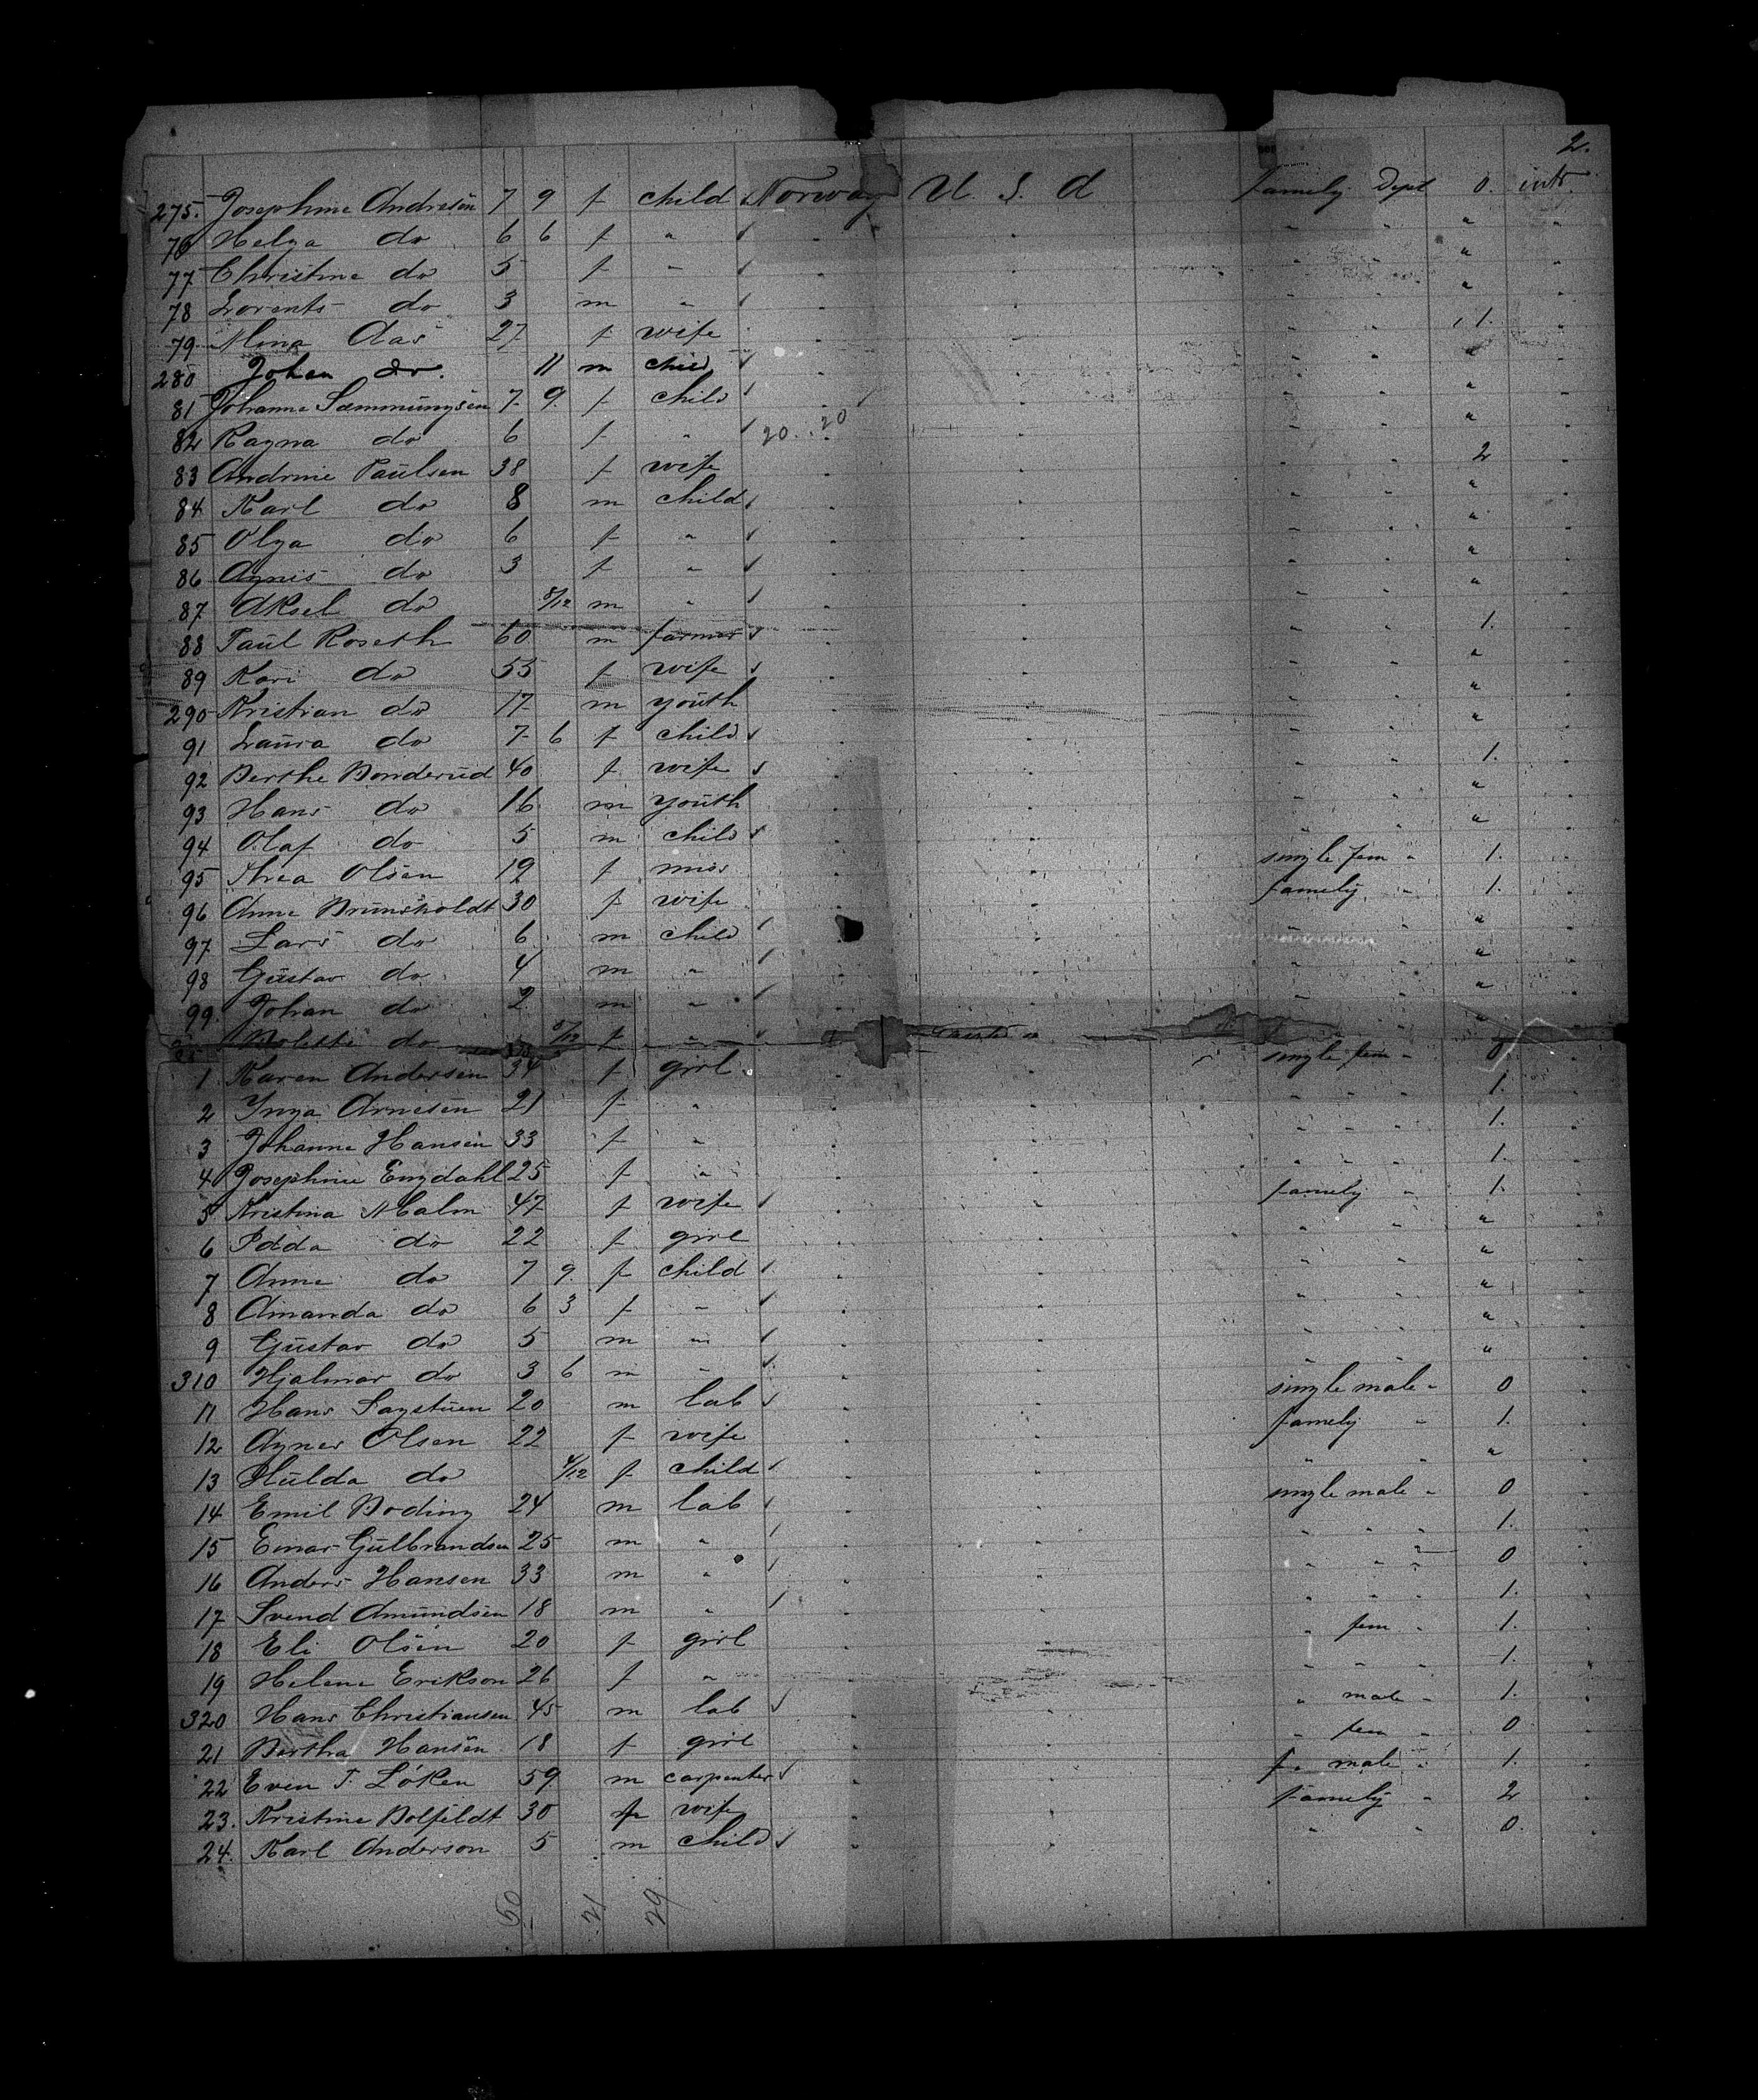 2.
275. Josephine Andresen 7 9 f child Norway U. S. A family Dept 0. intr.
76 Helga do 6 6 f " " " "
77 Christine do 5 f " "
78 Lorents do 3 m " "
79 Mina Aas 27 f wife 1.
280 Johan do. 11 m child "
81 Johanne Sæmmungsen 7 9. f child "
82 Ragna do 6 f " 20 20 "
83 Andrine Paulsen 38 f wife 2
84 Karl do 8 m child "
85 Olga do 6 f " "
86 Agnes do 3 f " "
87 Aksel do 8/12 m " "
88 Paul Roseth 60 m farmer 1.
89 Kari do 55 f wife "
290 Kristian do 17 m youth "
91 Laura do 7 6 f child "
92 Berthe Bonderud 40 f wife 1.
93 Hans do 16 m youth "
94 Olaf do 5 m child "
95 Thea Olsen 19 f miss single fem " 1.
96 Anne Brunsholdt 30 f wife famely " 1.
97 Lars do 6 m child "
98 Gustav do 4 m " "
99. Johan do 2 m " "
do 8/12 f " "
1 Karen Andersen 34 f girl single fem " 0
2 Inga Arnesen 21 f " " " " 1.
3 Johanne Hansen 33 f " " " " 1.
4 Josephine Engdahl 25 f " " " " 1.
5 Kristina Malm 47 f wife famely " 1.
6 Edda do 22 f girl "
7 Anne do 7 9. f child "
8 Amanda do 6 3 f " "
9 Gustav do 5 m " "
310 Hjalmar do 3 6 m " "
11 Hans Sagstuen 20 m lab single male " 0
12 Agnes Olsen 22 f wife famely " 1.
13 Hulda do 4/12 f child " " "
14 Emil Boding 24 m lab single male " 0
15 Einar Gulbrandsen 25 m " " " " 1.
16 Anders Hansen 33 m " " " " 0
17 Svend Amundsen 18 m " " " " 1.
18 Eli Olsen 20 f girl " fem " 1.
19 Helene Erikson 26 f " " " " 1.
320 Hans Christiansen 45 m lab " male " 1.
21 Bertha Hansen 18 f girl " fem " 0
22 Even T. Löken 59 m carpenter male " 1.
23. Kristine Bolfeldt 30 f wife famely " 2
24. Karl Anderson 5 m child " " 0.
50 21 29